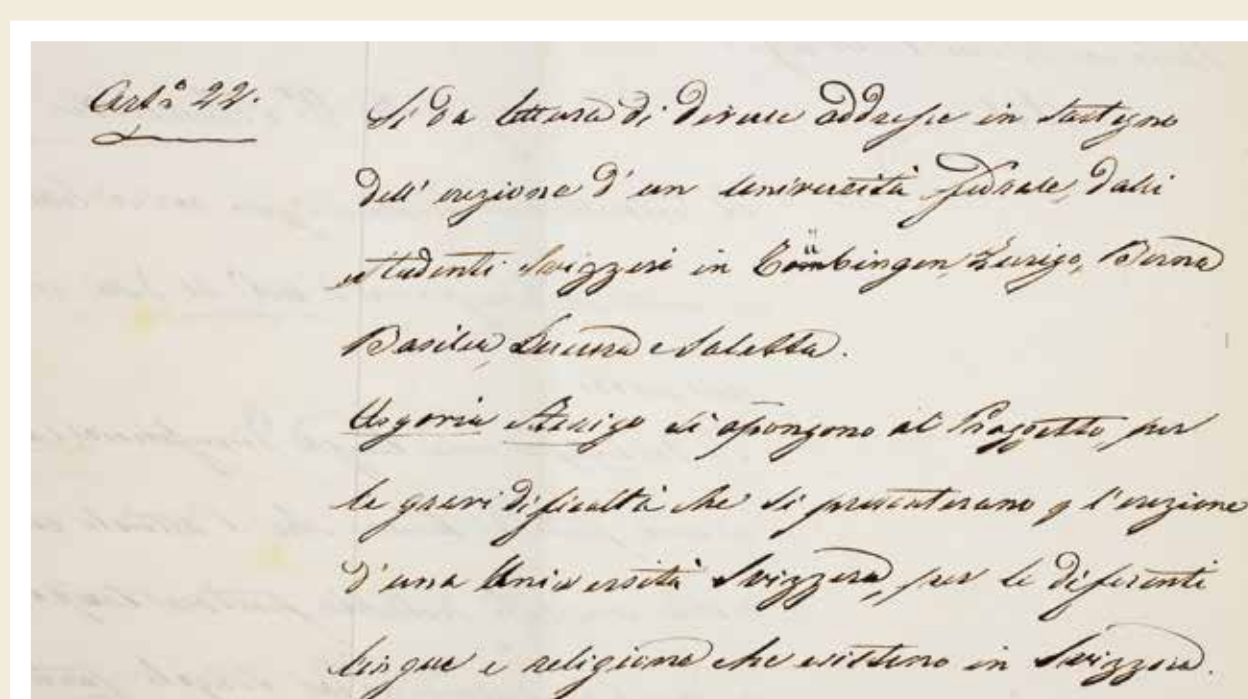 Art.º 22.
Si da lettura di diverse addresse in sostegno
dell' erezione d' un università federale, dalli
studenti svizzeri in Tübingen, Zurigo, Berna
Basilea, Lucerna e Soletta.
si opongono al Proggetto, per
le gravi dificoltà che si presenterano p l'erezione
d'una Università Svizzera, per le diferenti
lingue e religione che esisteno in Svizzera.